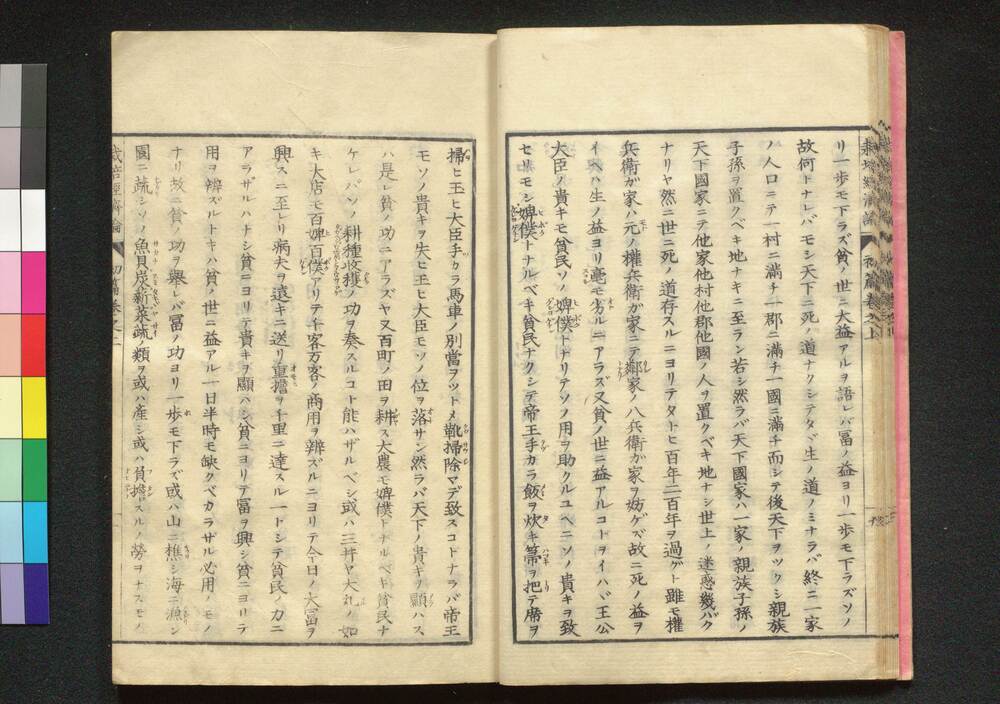 リ一歩モ下ラズ貧ノ世ニ大益アルヲ語レバ冨ノ益ヨリ一歩モ下ラズソノ
故何トナレバモシ天下ニ死ノ道ナクシテタヾ生ノ道ノミナラバ終ニ一家
ノ人口ニテ一村ニ満チ一郡ニ満チ一國ニ満チ而シテ後天下ヲツクシ親族
子孫ヲ置クベキ地ナキニ至ラン若シ然ラバ天下國家ハ一家ノ親族子孫ノ
天下國家ニテ他家他村他郡他國ノ人ヲ置クベキ地ナシ世上ノ迷惑幾バク
ナリヤ然ニ世ニ死ノ道存スルニヨリテタトヒ百年二百年ヲ過グト雖モ權
兵衛が家ハ元ノ權兵衛が家ニテ鄰家ノ八兵衛が家ヲ妨ゲズ故ニ死ノ益ヲ
イヘハ生ノ益ヨリ毫モ劣ルニアラズ又貧ノ世ニ益アルコトヲイハバ王公
大臣ノ貴キモ貧民ソノ婢僕トナリテソノ用ヲ助クルユヘニソノ貴キヲ致
セリモシ婢僕トナルベキ貧民ナクシテ帝王手カラ飯ヲ炊キ箒ヲ把テ席ヲ
初篇巻之上
掃ヒ玉ヒ大臣手カラ馬車ノ別當ヲツトメ靴掃除マデ致スコトナラバ帝王
モソノ貴キヲ失ヒ玉ヒ大臣モソノ位ヲ落サン然ラバ天下ノ貴キヲ顯ハス
ハ是レ貧ノ功ニアラズヤ又百町ノ田ヲ耕ス大農モ婢僕トナルベキ貧民ナ
ケレバソノ耕種收穫ノ功ヲ奏スルコト能ハザルベシ或ハ三井ヤ大丸ノ如
キ大店モ百婢百僕アリテ千客万客ノ商用ヲ辨ズルニヨリテ今日ノ大冨ヲ
興スニ至レリ病夫ヲ遠キニ送リ重擔ヲ千里ニ達スル一トシテ貧民ノ力ニ
アラザルハナシ貧ニヨリテ貴キヲ顯ハシ貧ニヨリテ冨ヲ興シ貧ニヨリテ
用ヲ辨ズルトキハ貧ノ世ニ益アル一日半時モ缺クベカラザル必用ノモノ
ナリ故ニ貧ノ功ヲ舉レバ冨ノ功ヨリ一歩モ下ラズ或ハ山ニ樵シ海ニ漁シ
園ニ蔬シソノ魚貝炭薪菜蔬ノ類ヲ或ハ産シ或ハ負擔スルノ勞ヲナスモノ
栽培經濟論 初篇巻之上